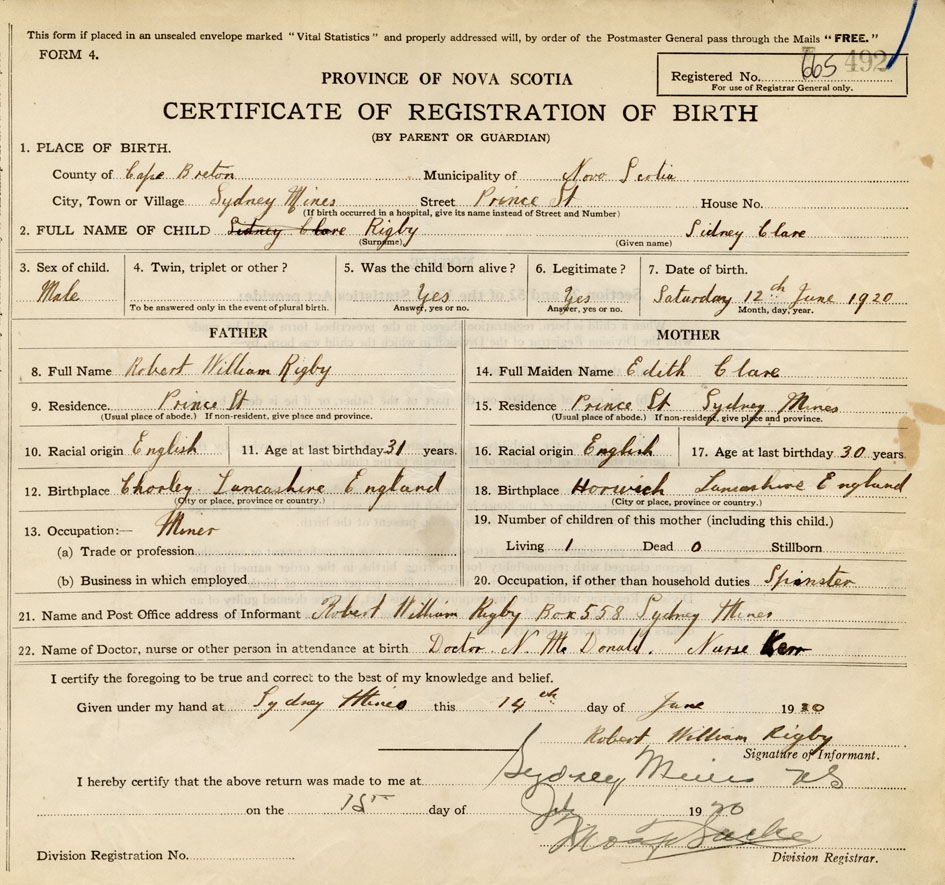 This form if placed in an unsealed envelope marked "Vital Statistics" and properly addressed will, by order of the Postmaster General pass through the Mails "FREE."
FORM 4.
PROVINCE OF NOVA SCOTIA
Registered No. 665 492
For use of Registrar General only.
CERTIFICATE OF REGISTRATION OF BIRTH
(BY PARENT OR GUARDIAN)
1. PLACE OF BIRTH.
County of Cape Breton Municipality of Nova Scotia
City, Town or Village Sydney Mines Street Prince St House No.
(If birth occurred in a hospital, give its name instead of Street and Number)
2. FULL NAME OF CHILD Sidney Clare Rigby Sidney Clare
(Surname) (Given name)
3. Sex of child. 4. Twin, triplet or other? 5. Was the child born alive? 6. Legitimate? 7. Date of birth.
Male Yes Yes Saturday 12th June 1920
To be answered only in the event of plural birth. Answer, yes or no. Answer, yes or no. Month, day, year.
FATHER MOTHER
8. Full Name Robert William Rigby 14. Full Maiden Name Edith Clare
9. Residence. Prince St 15. Residence Prince St Sydney Mines
(Usual place of abode.) If non-resident, give place and province. (Usual place of abode.) If non-resident, give place and province.
10. Racial origin English 11. Age at last birthday 31 years. 16. Racial origin English 17. Age at last birthday 30 years.
12. Birthplace Chorley Lancashire England 18. Birthplace Horwich Lancashire England
(City or place, province or country.) (City or place, province or country.)
13. Occupation:— Miner 19. Number of children of this mother (including this child.)
(a) Trade or profession Living 1 Dead 0 Stillborn
(b) Business in which employed 20. Occupation, if other than household duties Spinster
21. Name and Post Office address of Informant Robert William Rigby Box 558 Sydney Mines
22. Name of Doctor, nurse or other person in attendance at birth Doctor N. McDonald. Nurse Kerr
I certify the foregoing to be true and correct to the best of my knowledge and belief.
Given under my hand at Sydney Mines this 14th day of June 1920
Robert William Rigby
Signature of Informant.
I hereby certify that the above return was made to me at Sydney Mines NS
on the 15th day of July 1920
Division Registration No. Division Registrar.